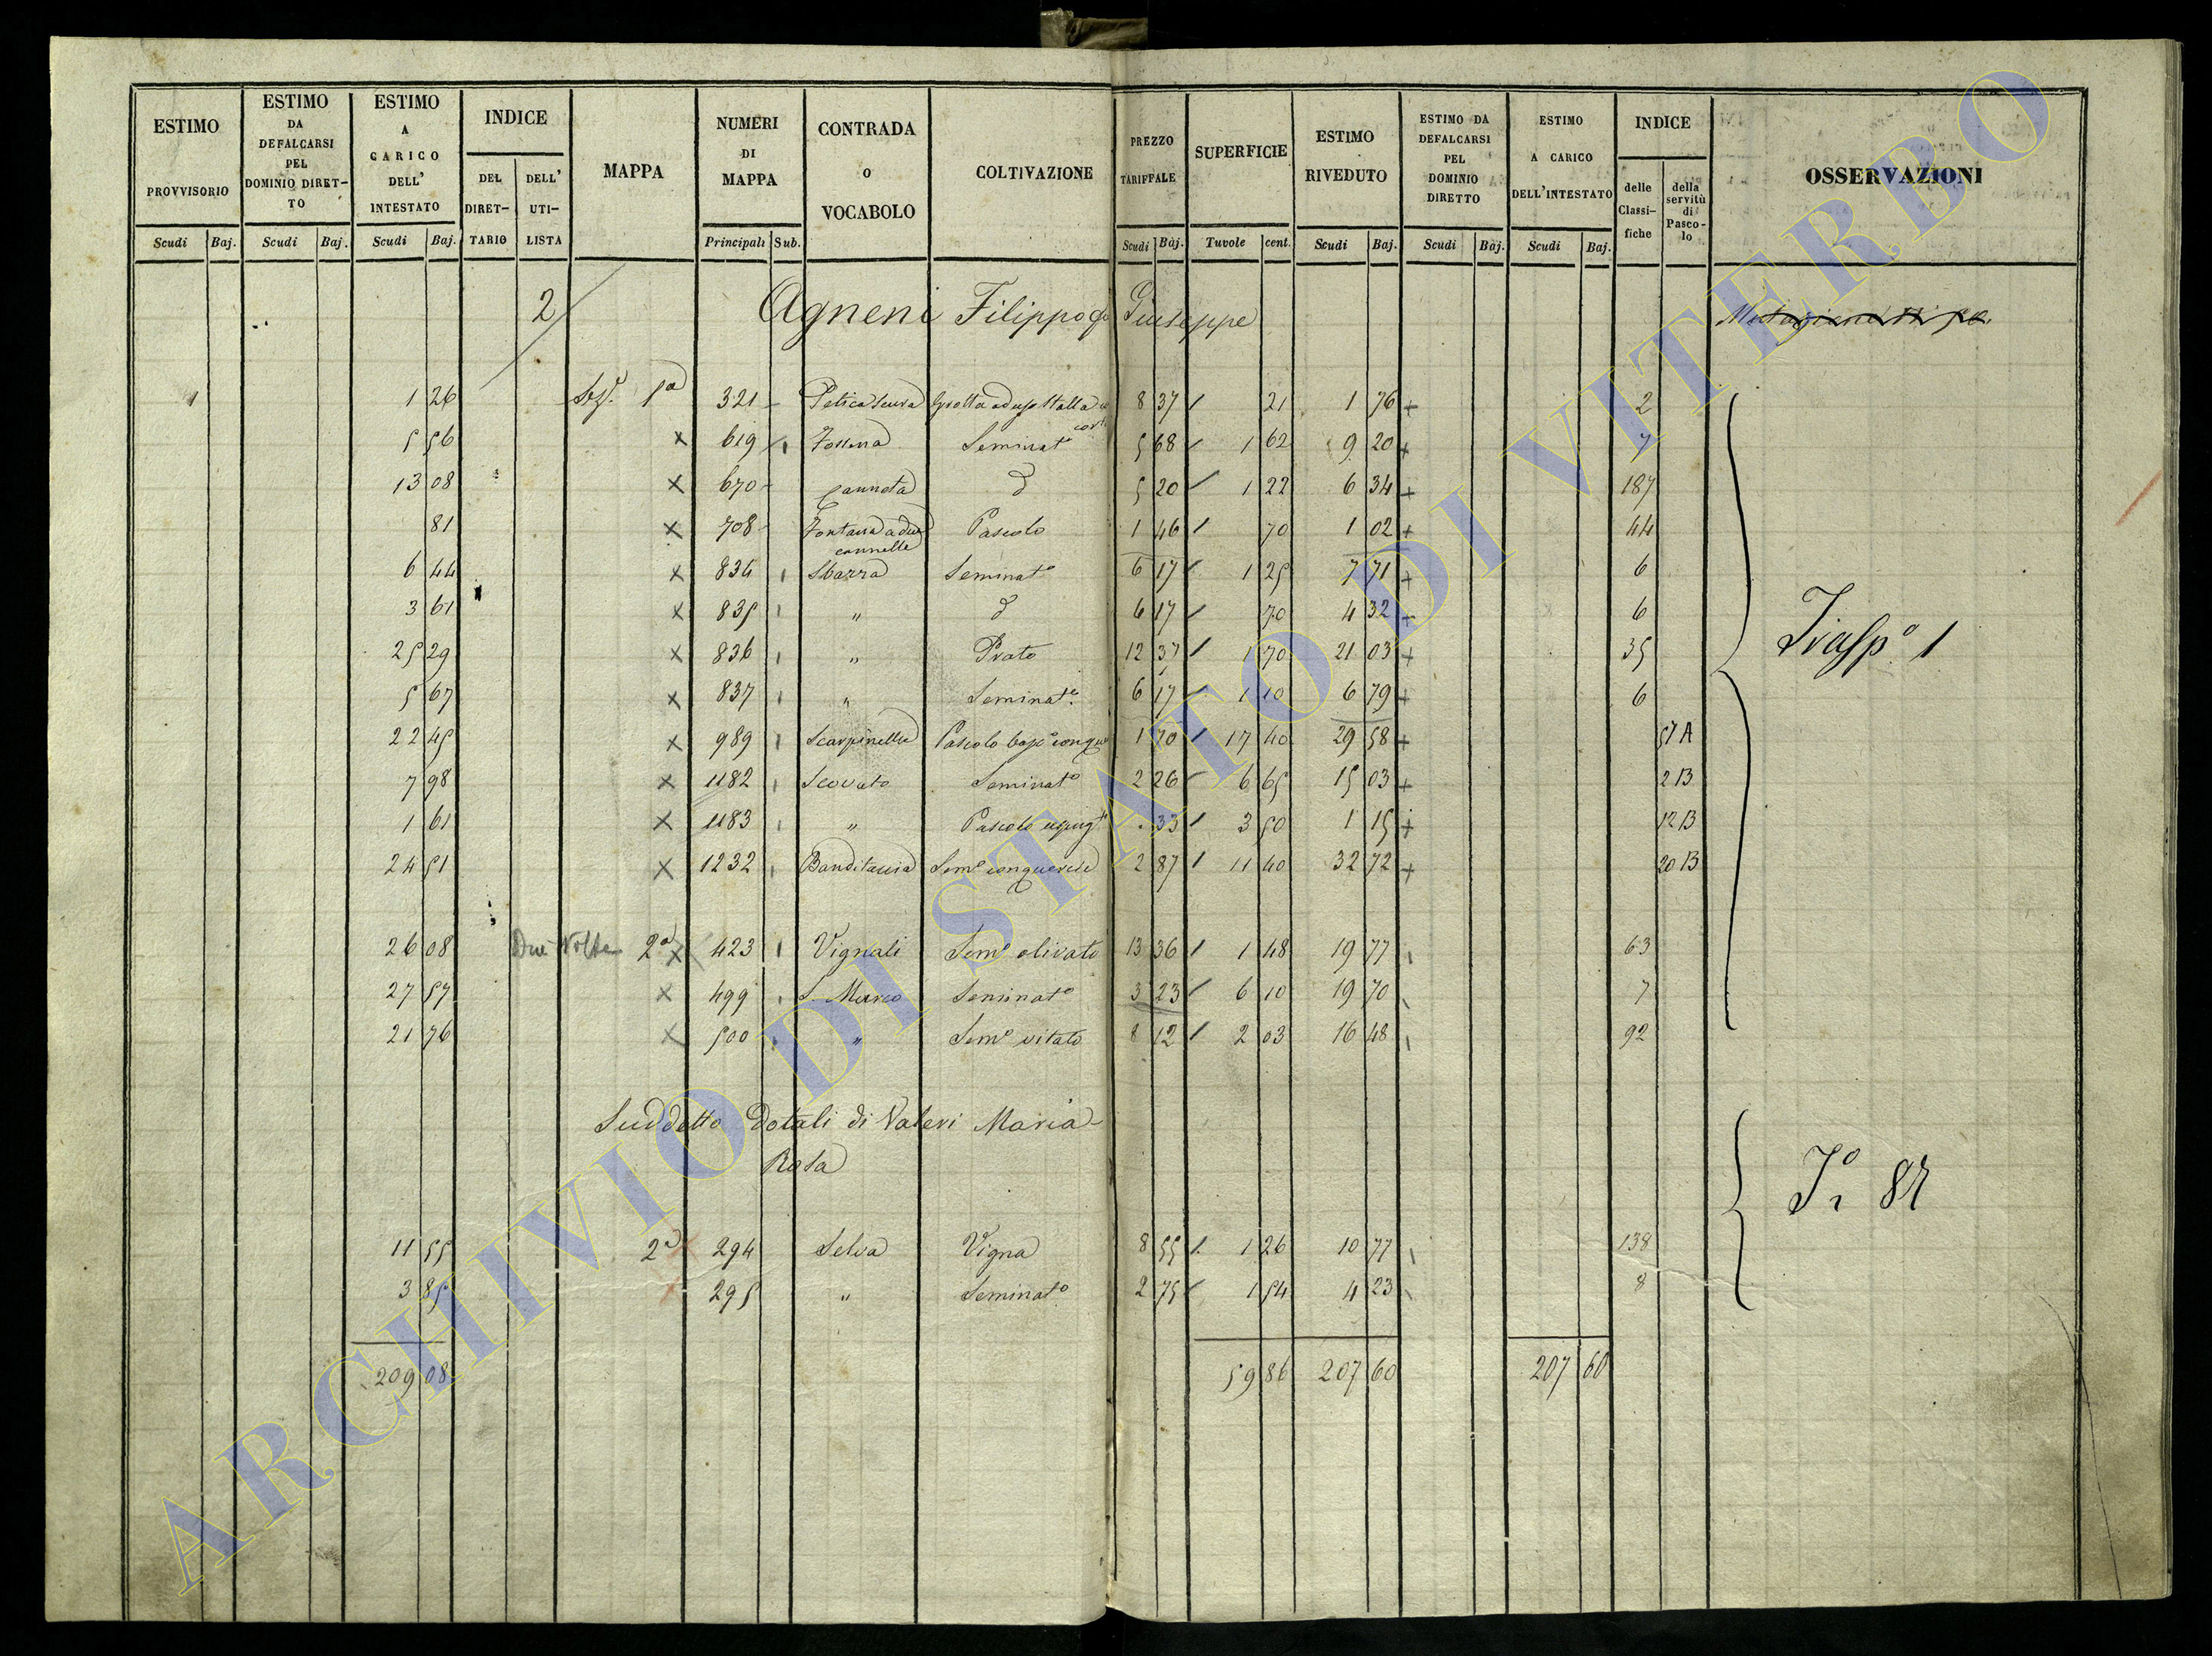 ESTIMO PROVVISORIO Scudi Baj.
ESTIMO DA DEFALCARSI PEL DOMINIO DIRET-TO Scudi Baj.
ESTIMO A CARICO DELL' INTESTATO Scudi Baj.
INDICE DEL DIRET-TARIO DELL' UTI-LISTA
MAPPA
NUMERI DI MAPPA Principali Sub.
CONTRADA O VOCABOLO
COLTIVAZIONE
PREZZO TARIFFALE Scudi Baj.
SUPERFICIE Tavole cent.
ESTIMO RIVEDUTO Scudi Baj.
ESTIMO DA DEFALCARSI PEL DOMINIO DIRETTO Scudi Baj.
ESTIMO A CARICO DELL'INTESTATO Scudi Baj.
INDICE delle Classi-fiche della servitù di Pasco-lo
OSSERVAZIONI
2 Agneni Filippo q Giuseppe
1 26 Sez. 1a 321 Grotta ad uso Stalla 8 37 21 1 76 2
5 56 x 619 Seminato 5 68 1 62 9 20 7
13 08 x 670 Canneta d 5 20 1 22 6 34 187
81 x 708 Fontana a due cannelle Pascolo 1 46 70 1 02 44
6 44 x 834 Sbarra Seminato 6 17 1 25 7 71 6
3 61 x 835 " d 6 17 70 4 32 6
25 29 x 836 " Prato 12 37 1 70 21 03 35
5 67 x 837 " Seminato 6 17 1 10 6 79 6
22 45 x 989 Scarpinella Pascolo 1 70 17 40 29 58 57 A
7 98 x 1182 Scovato Seminato 2 26 6 65 15 03 2 B
1 61 x 1183 " Pascolo 33 3 50 1 15 12 B
24 51 x 1232 Banditaccia Semo con querce 2 87 11 40 32 72 20 B
Trasp.o 1
26 08 Due Volte 2a x 423 Vignali Semo olivato 13 36 1 48 19 77 63
27 57 x 499 S. Marco Seminato 3 23 6 10 19 70 7
21 76 x 500 " Semo vitato 8 12 2 03 16 48 92
Suddetto Dotali di Valeri Maria
Rosa
11 55 2a x 294 Selva Vigna 8 55 1 26 10 77 138
3 85 295 " Seminato 2 75 1 54 4 23 8
209 08 59 86 207 60 207 60
ARCHIVIO DI STATO DI VITERBO